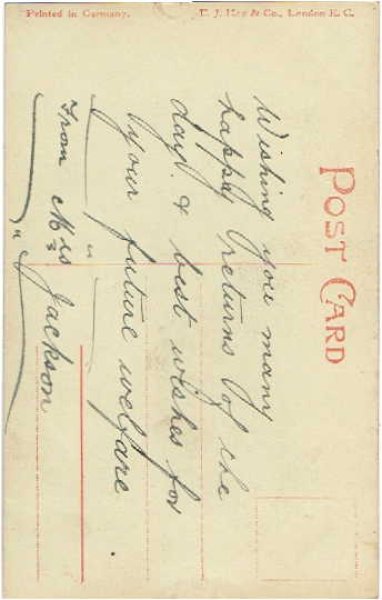 Printed in Germany.
E. J. Hey & Co., London E. C.
POST CARD
Wishing you many
happy returns of the
day. & best wishes for
your future welfare
From Mrs Jackson